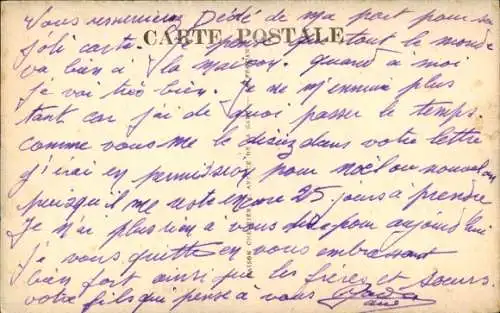 Vous remercierez Dédé de ma part pour sa
CARTE POSTALE
joli carte. Je pense que tout le monde
va bien à la maison. quand a moi
je vai très bien. Je ne m'ennuie plus
tant car j'ai de quoi passer le temps.
comme vous me le disiez dans votre lettre
j'irai en permission pour noel ou nouvel an
puisqu'il me reste encore 25 jours à prendre
Je n'ai plus rien a vous dire pour aujourd'hui
je vous quitte en vous embrassant
bien fort ainsi que les frères et soeurs.
votre fils qui pense à vous